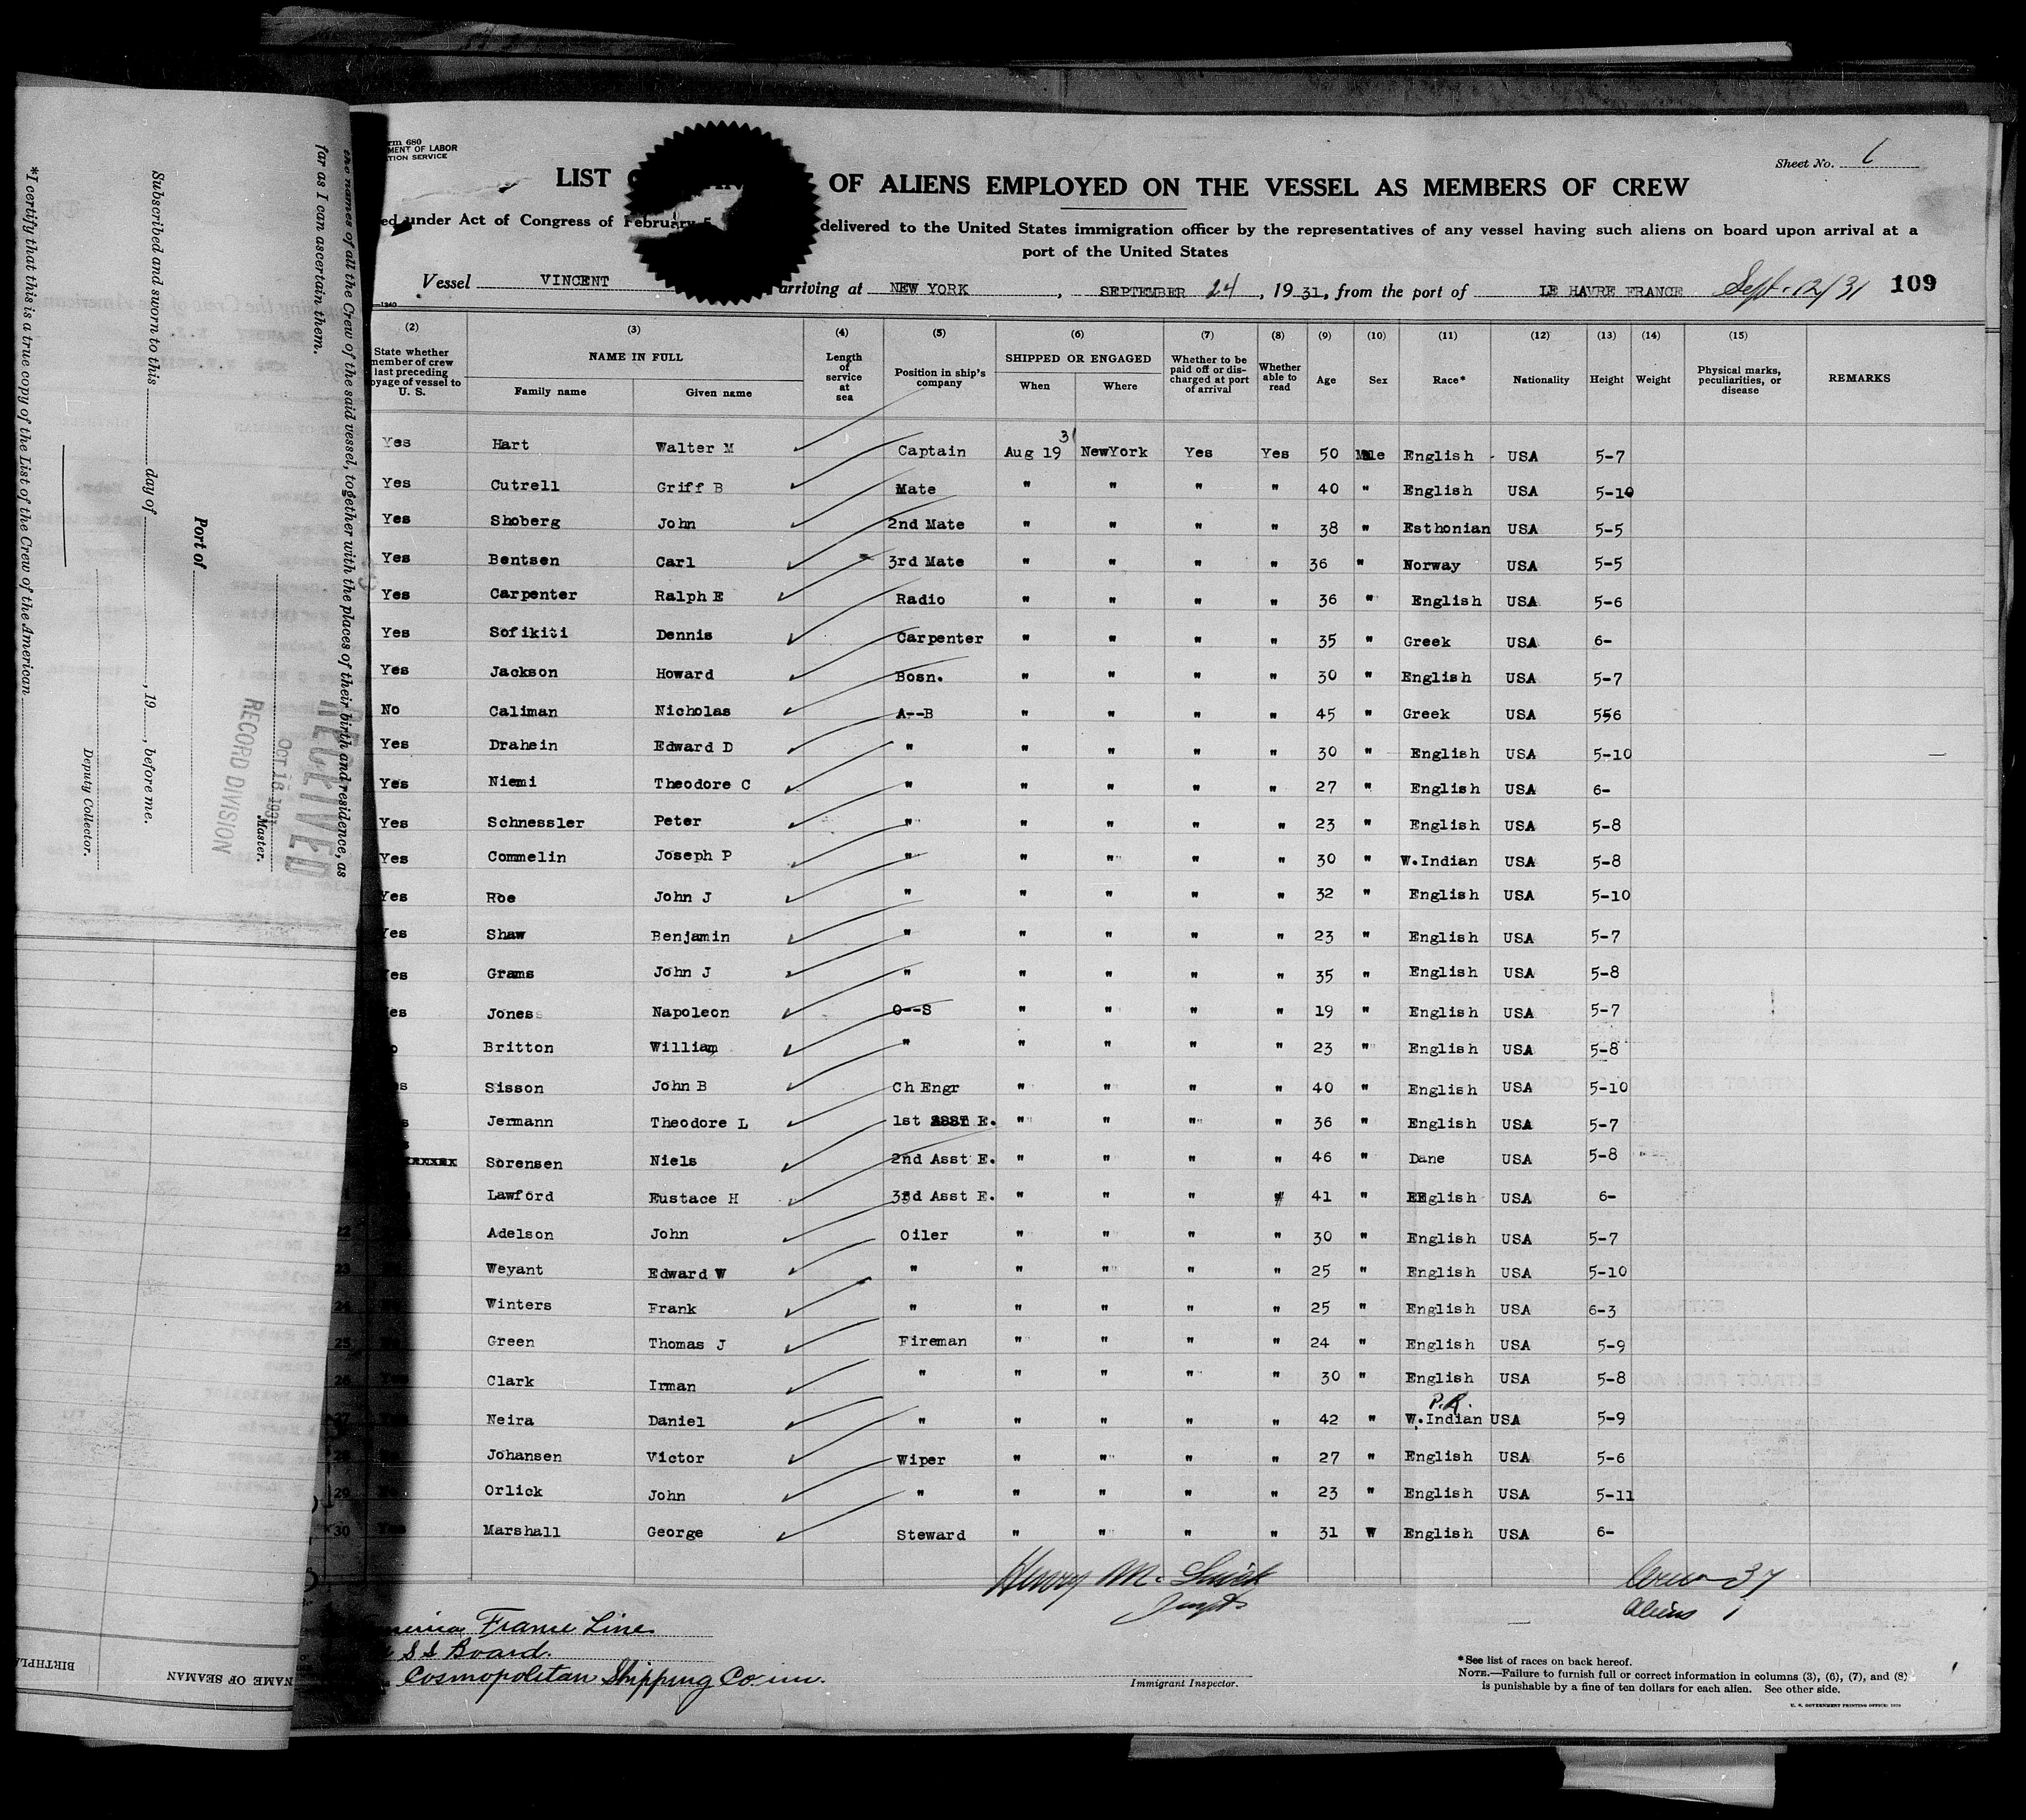 Form 680
MENT OF LABOR
TION SERVICE
Sheet No. 1
LIST OF ALIENS EMPLOYED ON THE VESSEL AS MEMBERS OF CREW
ed under Act of Congress of February 5 delivered to the United States immigration officer by the representatives of any vessel having such aliens on board upon arrival at a
port of the United States
Vessel VINCENT arriving at NEW YORK, SEPTEMBER 24, 1931, from the port of LE HAVRE FRANCE Sept. 12/31 109
(2) (3) (4) (5) (6) (7) (8) (9) (10) (11) (12) (13) (14) (15)
State whether member of crew last preceding voyage of vessel to U. S. NAME IN FULL Family name Given name Length of service at sea Position in ship's company SHIPPED OR ENGAGED When Where Whether to be paid off or discharged at port of arrival Whether able to read Age Sex Race* Nationality Height Weight Physical marks, peculiarities, or disease REMARKS
Yes Hart Walter M Captain Aug 19 31 NewYork Yes Yes 50 Male English USA 5-7
Yes Cutrell Griff B Mate " " " " 40 " English USA 5-10
Yes Shoberg John 2nd Mate " " " " 38 " Esthonian USA 5-5
Yes Bentsen Carl 3rd Mate " " " " 36 " Norway USA 5-5
Yes Carpenter Ralph E Radio " " " " 36 " English USA 5-6
Yes Sofikiti Dennis Carpenter " " " " 35 " Greek USA 6-
Yes Jackson Howard Bosn. " " " " 30 " English USA 5-7
No Caliman Nicholas A--B " " " " 45 " Greek USA 556
Yes Drahein Edward D " " " " " 30 " English USA 5-10
Yes Niemi Theodore C " " " " " 27 " English USA 6-
Yes Schnessler Peter " " " " " 23 " English USA 5-8
Yes Commelin Joseph P " " " " " 30 " W.Indian USA 5-8
Yes Roe John J " " " " " 32 " English USA 5-10
Yes Shaw Benjamin " " " " " 23 " English USA 5-7
es Grams John J " " " " " 35 " English USA 5-8
es Jones Napoleon O--S " " " " 19 " English USA 5-7
o Britton William " " " " " 23 " English USA 5-8
s Sisson John B Ch Engr " " " " 40 " English USA 5-10
s Jermann Theodore L 1st Asst E. " " " " 36 " English USA 5-7
Sorensen Niels 2nd Asst E. " " " " 46 " Dane USA 5-8
Lawford Eustace H 3rd Asst E. " " " " 41 " English USA 6-
22 Adelson John Oiler " " " " 30 " English USA 5-7
23 Weyant Edward W " " " " " 25 " English USA 5-10
24 Winters Frank " " " " " 25 " English USA 6-3
25 Green Thomas J Fireman " " " " 24 " English USA 5-9
26 Clark Irman " " " " " 30 " English USA 5-8
P.R.
27 Neira Daniel " " " " " 42 " W.Indian USA 5-9
28 Johansen Victor Wiper " " " " 27 " English USA 5-6
29 Orlick John " " " " " 23 " English USA 5-11
30 Yes Marshall George Steward " " " " 31 W English USA 6-
Henry M.
Crew 37
Aliens 1
France Line
S S Board.
Cosmopolitan Shipping Co inc.
Immigrant Inspector.
*See list of races on back hereof.
NOTE.—Failure to furnish full or correct information in columns (3), (6), (7), and (8)
is punishable by a fine of ten dollars for each alien. See other side.
U. S. GOVERNMENT PRINTING OFFICE: 1929
the names of all the Crew of the said vessel, together with the places of their birth and residence, as
far as I can ascertain them.
Master.
RECEIVED
OCT 16 1931
RECORD DIVISION
Port of
Subscribed and sworn to this day of , 19 , before me.
Deputy Collector.
*I certify that this is a true copy of the List of the Crew of the American
NAME OF SEAMAN
BIRTHPLA